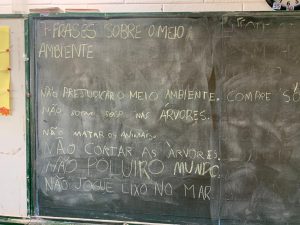 7 FRASES SOBRE O MEIO
AMBIENTE
NÃO PREJUDICAR O MEIO AMBIENTE. COMPRE
NÃO NAS ÁRVORES.
NÃO MATAR OS ANIMAIS.
NÃO CORTAR AS ÁRVORES.
NÃO POLUIR O MUNDO.
NÃO JOGUE LIXO NO MAR